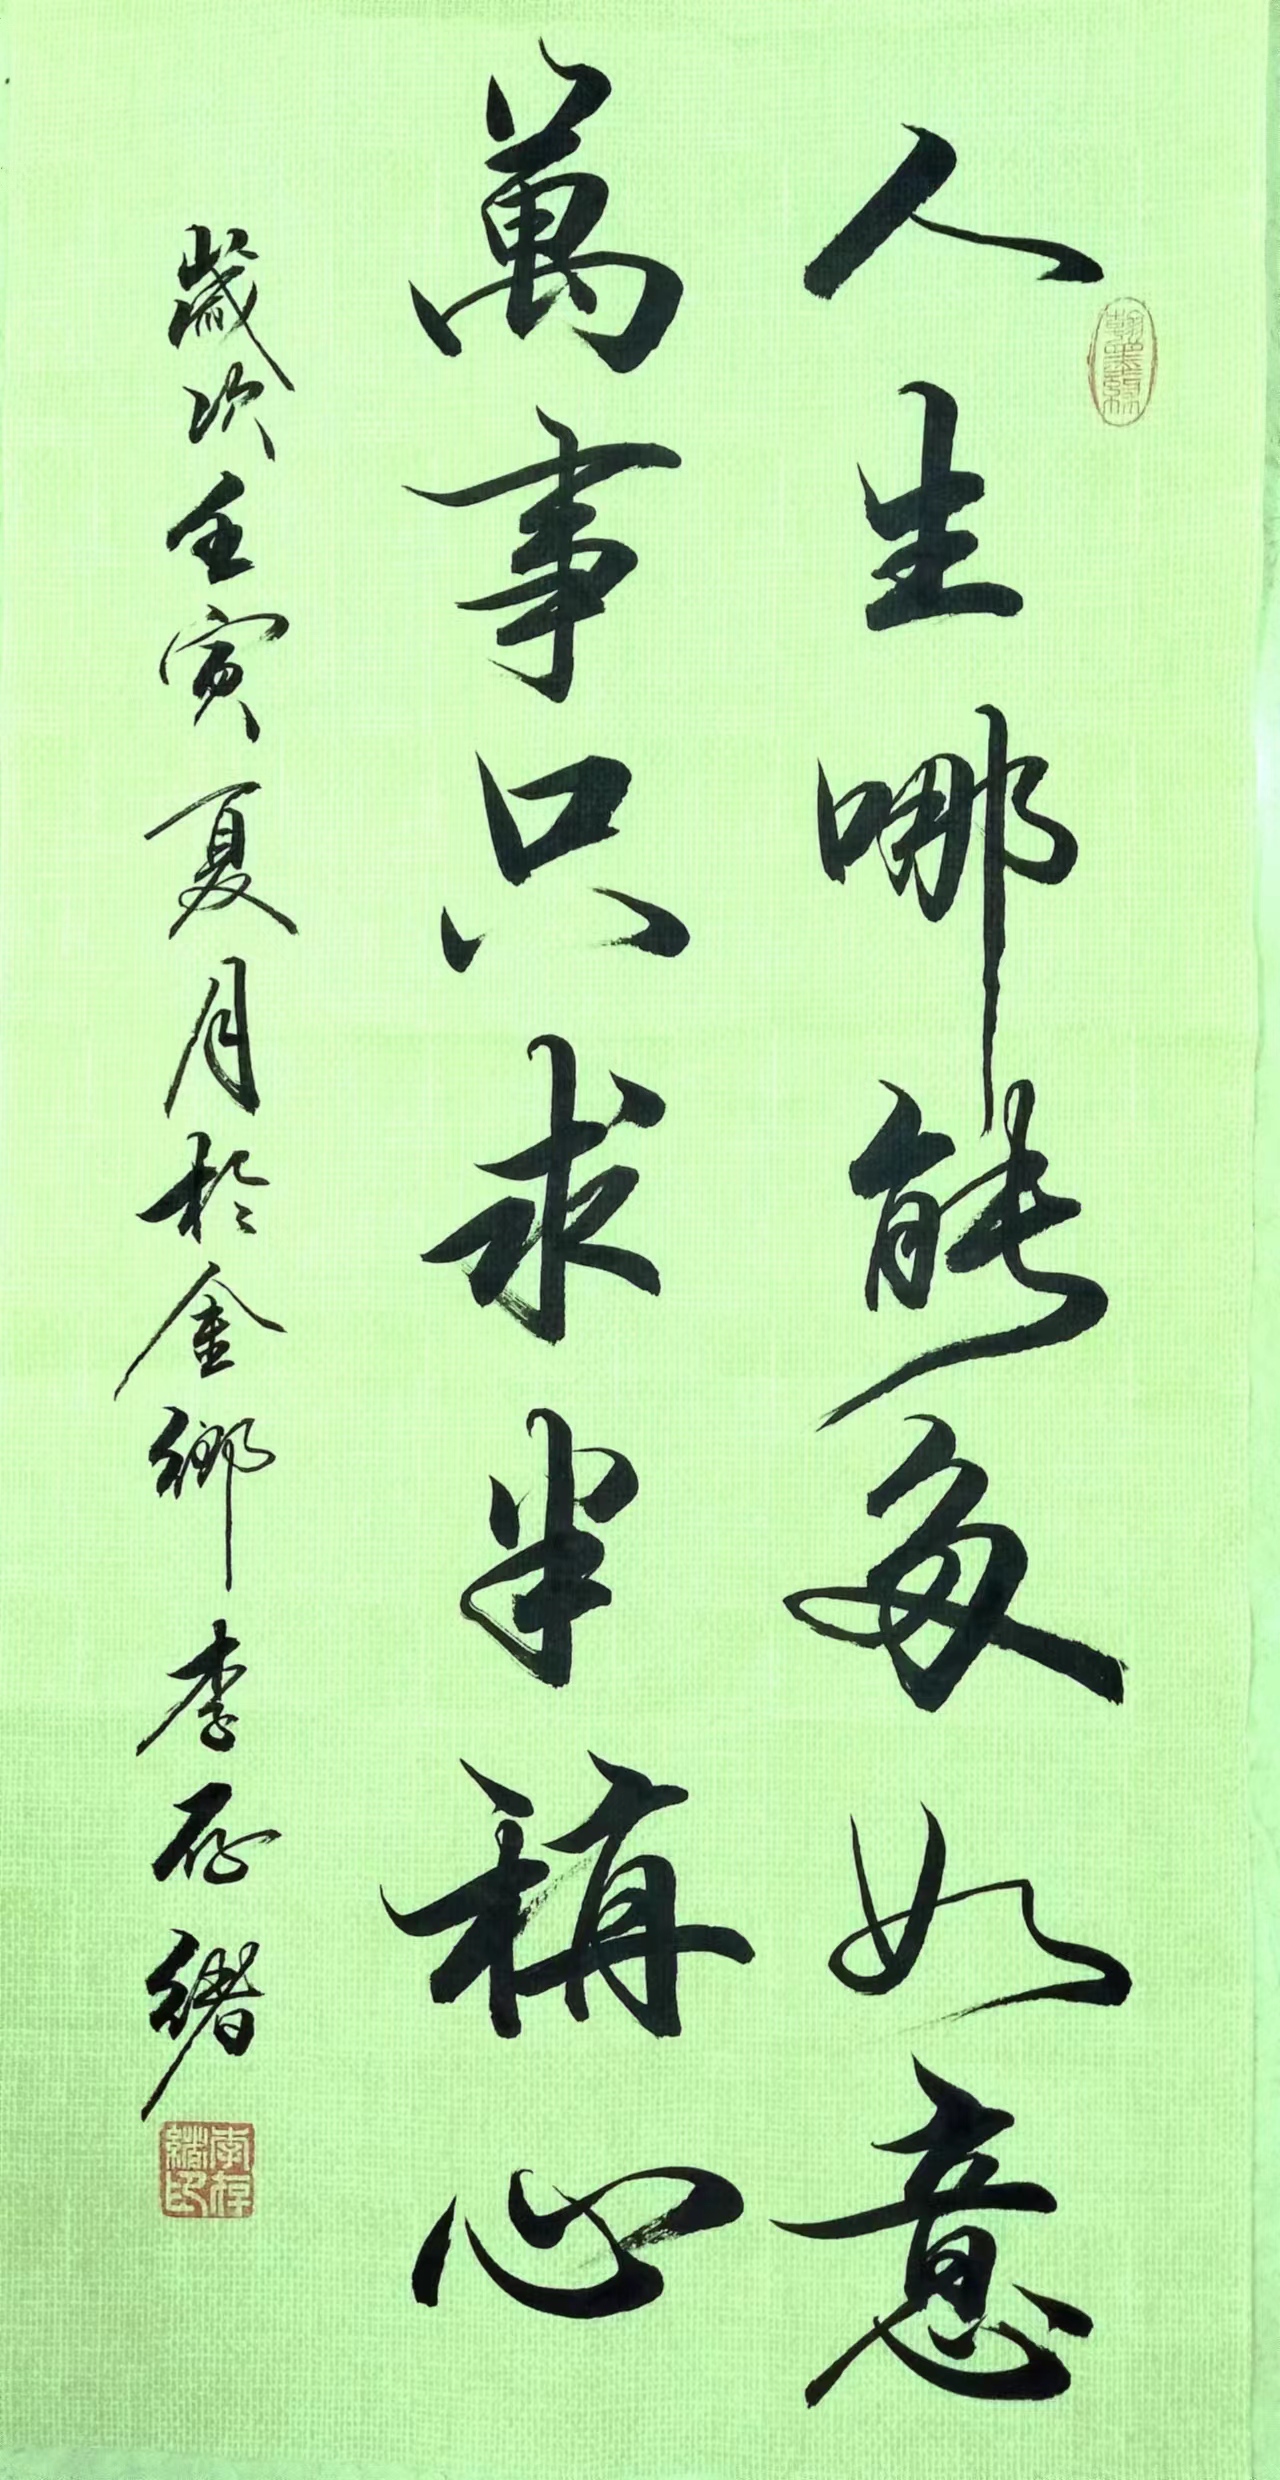 人生哪能多如意
萬事只求半稱心
歲次壬寅夏月於金鄉李存緒
李存緒印